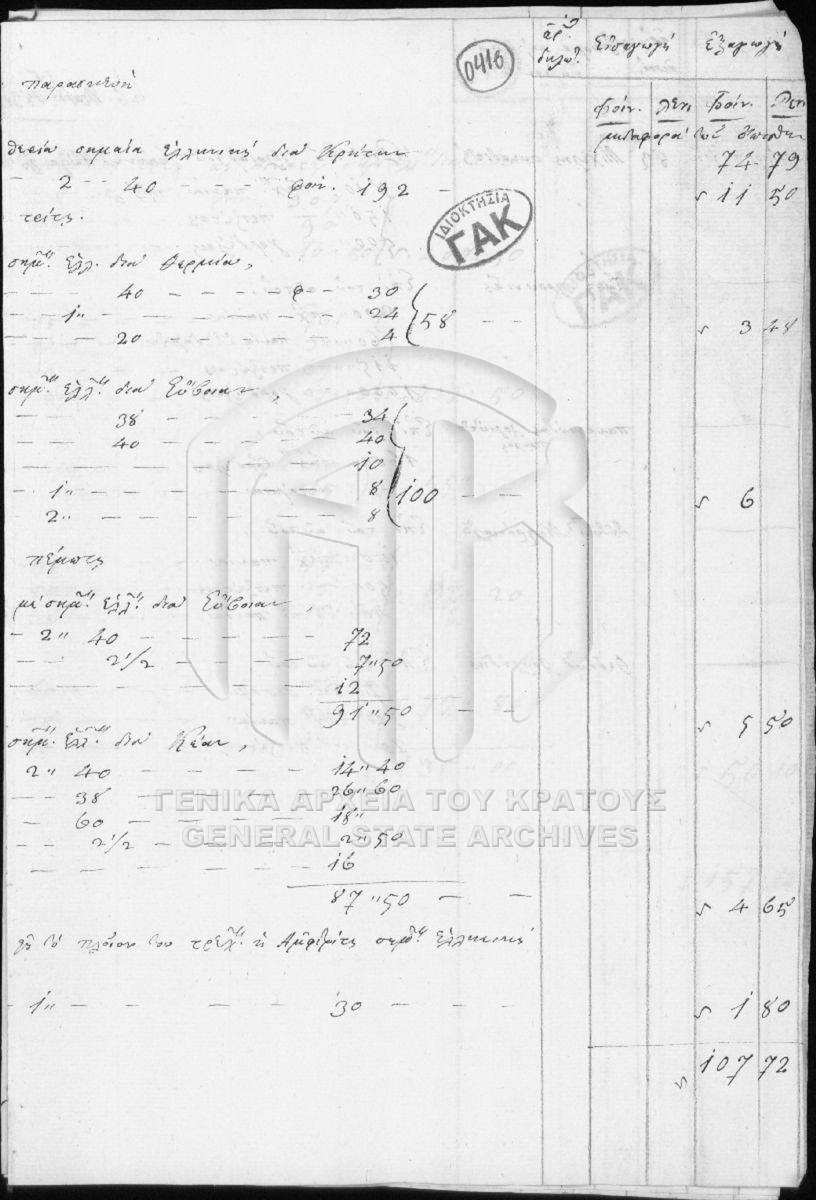 0416
ἀρ. Εἰσαγωγή Ἐξαγωγή
δηλωτ.
Φοίν. Λεπ. Φοίν. Λεπ.
μεταφορά τοῦ ὄπισθεν
74 79
παρασκευή
σημαία ἑλληνική διά Κρήτην
2 40 φοίν. 192 11 50
τρίτη.
σημ. Ἑλλ. διά Θερμία,
40 φ 30
1" 24 58 3 48
20 4
σημ. ἑλλ. διά Εὔβοιαν,
38 34
40 40
10
1" 8 100 6
2" 8
πέμπτη
μέ σημ. ἑλλ. διά Εὔβοιαν,
2" 40 72
2 1/2 7"50
12
91"50 5 50
σημ. ἑλλ. διά Κέαν,
2" 40 14"40
38 26"60
60 18"
2 1/2 2"50
16
87"50 4 65
τό πλοῖον του ἡ Ἀμφιτρίτη σημ. ἑλληνική
1" 30 1 80
107 72
ΙΔΙΟΚΤΗΣΙΑ
ΓΑΚ
ΓΕΝΙΚΑ ΑΡΧΕΙΑ ΤΟΥ ΚΡΑΤΟΥΣ
GENERAL STATE ARCHIVES